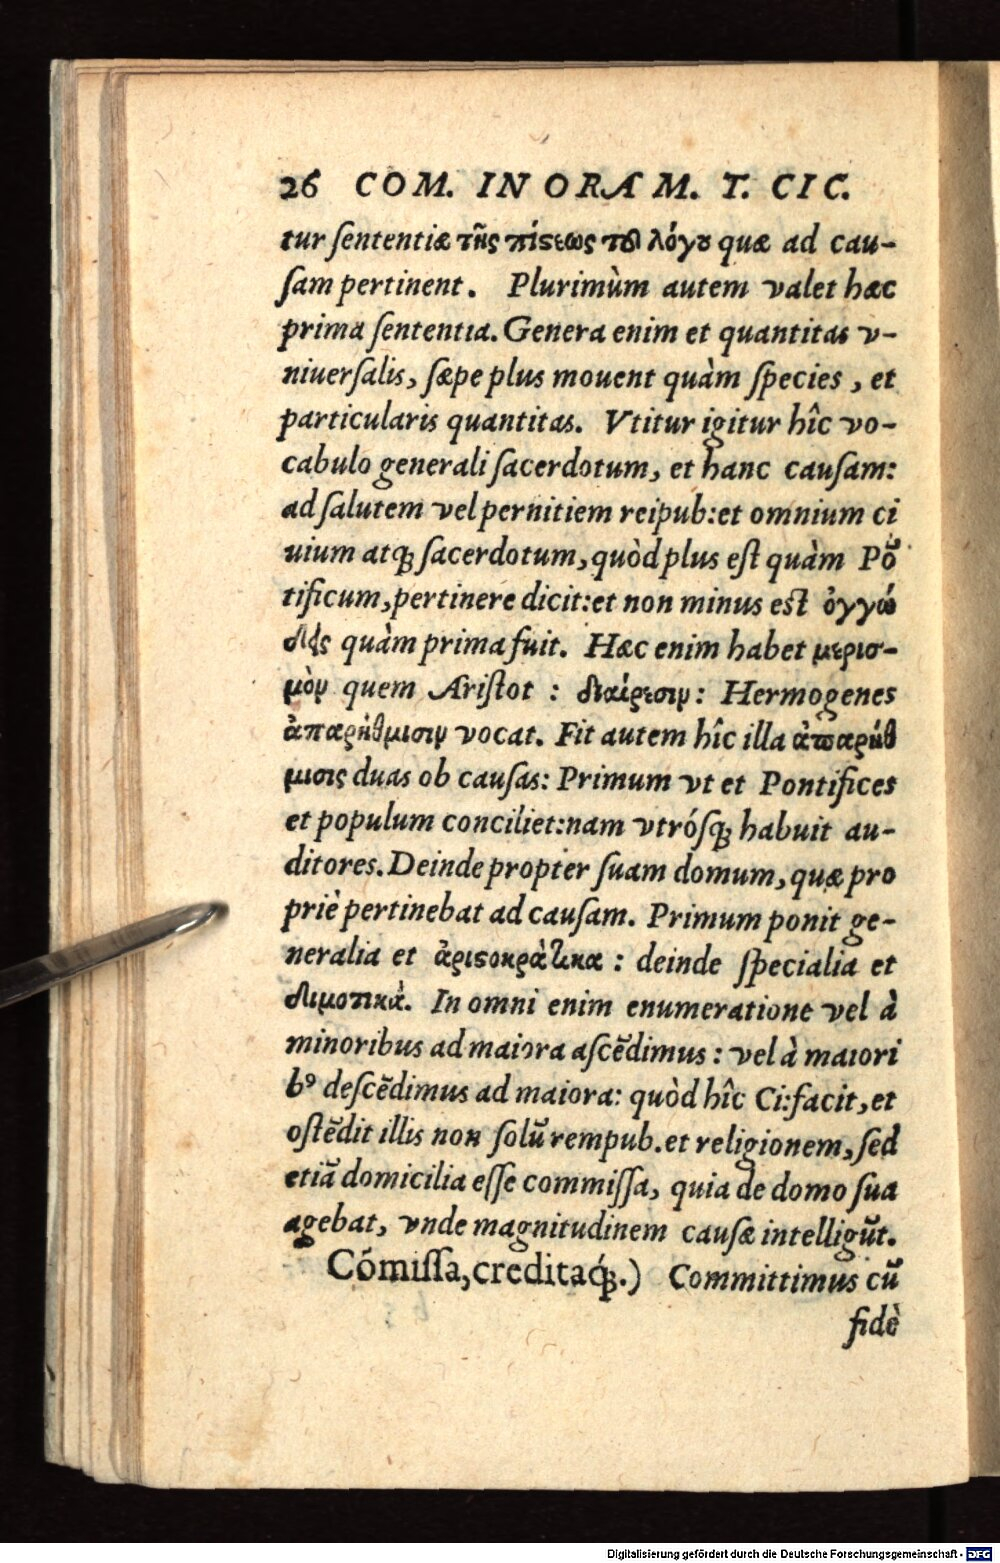 26 COM. IN ORA M. T. CIC.
tur ſententiæ τῆς πίςεως τȣ͂ λόγȣ quæ ad cau-
ſam pertinent. Plurimùm autem valet hæc
prima ſententia. Genera enim et quantitas v-
niuerſalis, ſæpe plus mouent quàm ſpecies, et
particularis quantitas. Vtitur igitur hîc vo-
cabulo generali ſacerdotum, et hanc cauſam:
ad ſalutem vel pernitiem reipub: et omnium ci
uium atq́ꝫ ſacerdotum, quòd plus eſt quàm Põ
tificum, pertinere dicit: et non minus est ὀγγώ
δης quàm prima fuit. Hæc enim habet μερισ-
μὸν quem Ariſtot: διαίρεσιν: Hermogenes
ἀπαρήθμισιν vocat. Fit autem hîc illa ἀπαρήθ
μισις duas ob cauſas: Primum vt et Pontifices
et populum conciliet: nam vtróſqꝫ habuit au-
ditores. Deinde propter ſuam domum, quæ pro
priè pertinebat ad cauſam. Primum ponit ge-
neralia et ἀριςοκρὰτικα: deinde ſpecialia et
διμοτικὰ. In omni enim enumeratione vel à
minoribus ad maiora aſcẽdimus: vel à maiori
bꝰ deſcẽdimus ad maiora: quòd hîc Ci: facit, et
oſtẽdit illis non ſolũ rempub. et religionem, ſed
etiã domicilia eſſe commiſſa, quia de domo ſua
agebat, vnde magnitudinem cauſæ intelligũt.
Cómiſſa, creditaq́ꝫ.) Committimus cũ
fidè
Digitalisierung gefördert durch die Deutsche Forschungsgemeinschaft - DFG